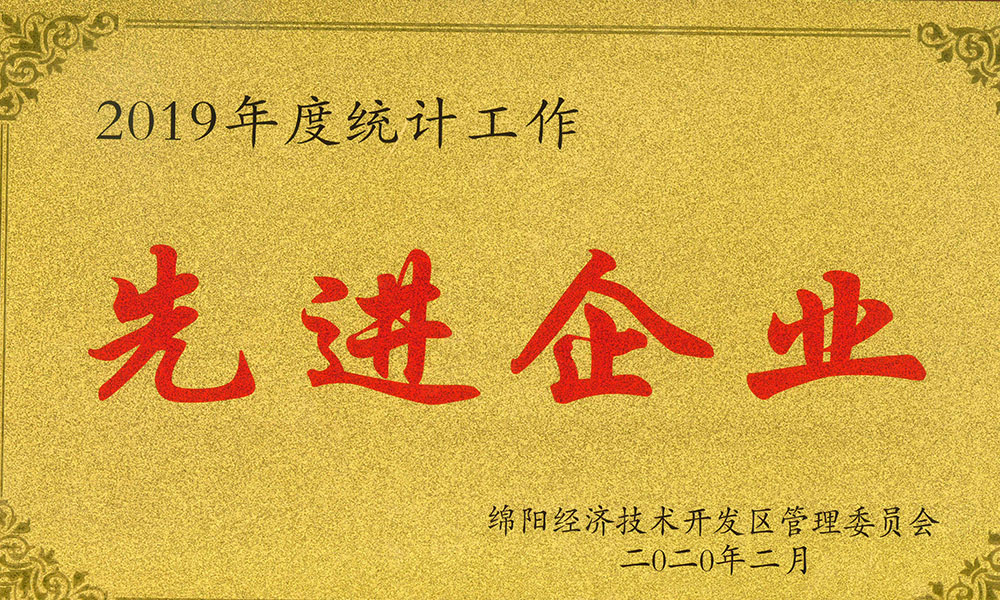 2019年度统计工作
先进企业
绵阳经济技术开发区管理委员会
二0二0年二月